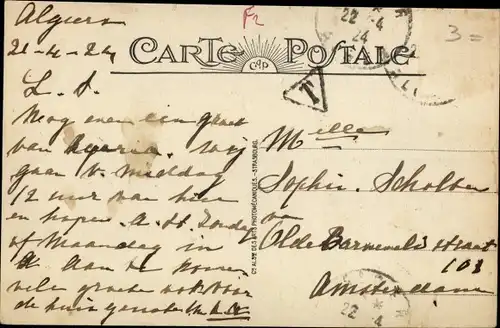 Algiers
21-4-24
Fr
22 4
24
3=
CARTE POSTALE
CAP
T
L. S.
Nog even een groet
van Algeria. Wij
gaan v. middag
12 uur van hier
en hopen a. st. Zondag
of Maandag in
A. aan te komen
vele groeten ook voor
de huisgenooten
CIE ALSNE DES ARTS PHOTOMÉCANIQUES. - STRASBOURG.
Melle
Sophie Scholten
Olde Barneveldt straat
103
Amsterdam
22 4